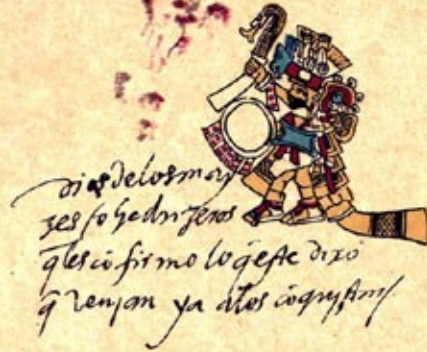 dios delos may
zes / o hechizeros
q̃ les cõfirmo lo q̃ este dixo
q̃ venjan ya alos cõqujstar